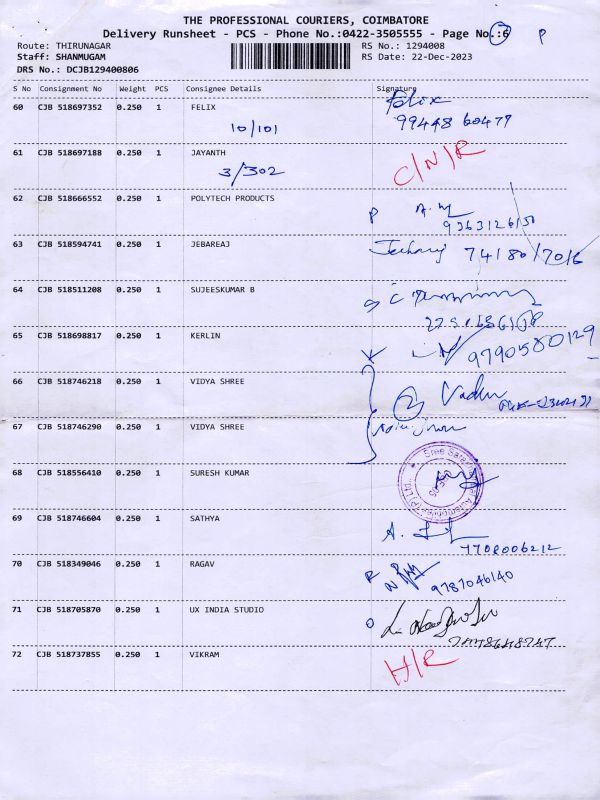 THE PROFESSIONAL COURIERS, COIMBATORE
Delivery Runsheet - PCS - Phone No.:0422-3505555 - Page No.:6 P
Route: THIRUNAGAR RS No.: 1294008
Staff: SHANMUGAM RS Date: 22-Dec-2023
DRS No.: DCJB129400806
S No Consignment No Weight PCS Consignee Details Signature
60 CJB 518697352 0.250 1 FELIX Felix
10/101 99448 60477
61 CJB 518697188 0.250 1 JAYANTH C/N/R
3/302
62 CJB 518666552 0.250 1 POLYTECH PRODUCTS
P 9363126130
63 CJB 518594741 0.250 1 JEBAREAJ 74180/7016
64 CJB 518511208 0.250 1 SUJEESKUMAR B
65 CJB 518698817 0.250 1 KERLIN
9790580129
66 CJB 518746218 0.250 1 VIDYA SHREE
67 CJB 518746290 0.250 1 VIDYA SHREE
68 CJB 518556410 0.250 1 SURESH KUMAR
69 CJB 518746604 0.250 1 SATHYA
7708006212
70 CJB 518349046 0.250 1 RAGAV
9787046140
71 CJB 518705870 0.250 1 UX INDIA STUDIO
72 CJB 518737855 0.250 1 VIKRAM H/R